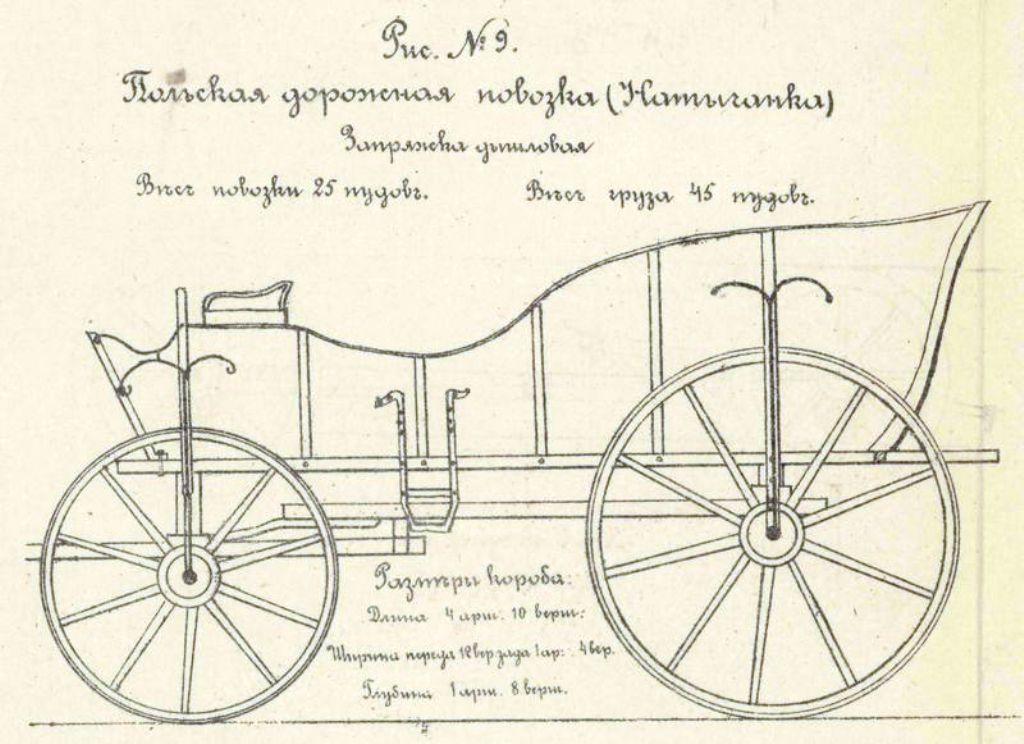 Рис. № 9.
Польская дорожная повозка (Натычанка)
Запряжка дышловая
Вѣсъ повозки 25 пудовъ. Вѣсъ груза 45 пудовъ.
Размѣры короба:
Длина 4 арш. 10 верш:
Ширина переда 12 вер зада 1 ар: 4 вер.
Глубина 1 арш. 8 верш.